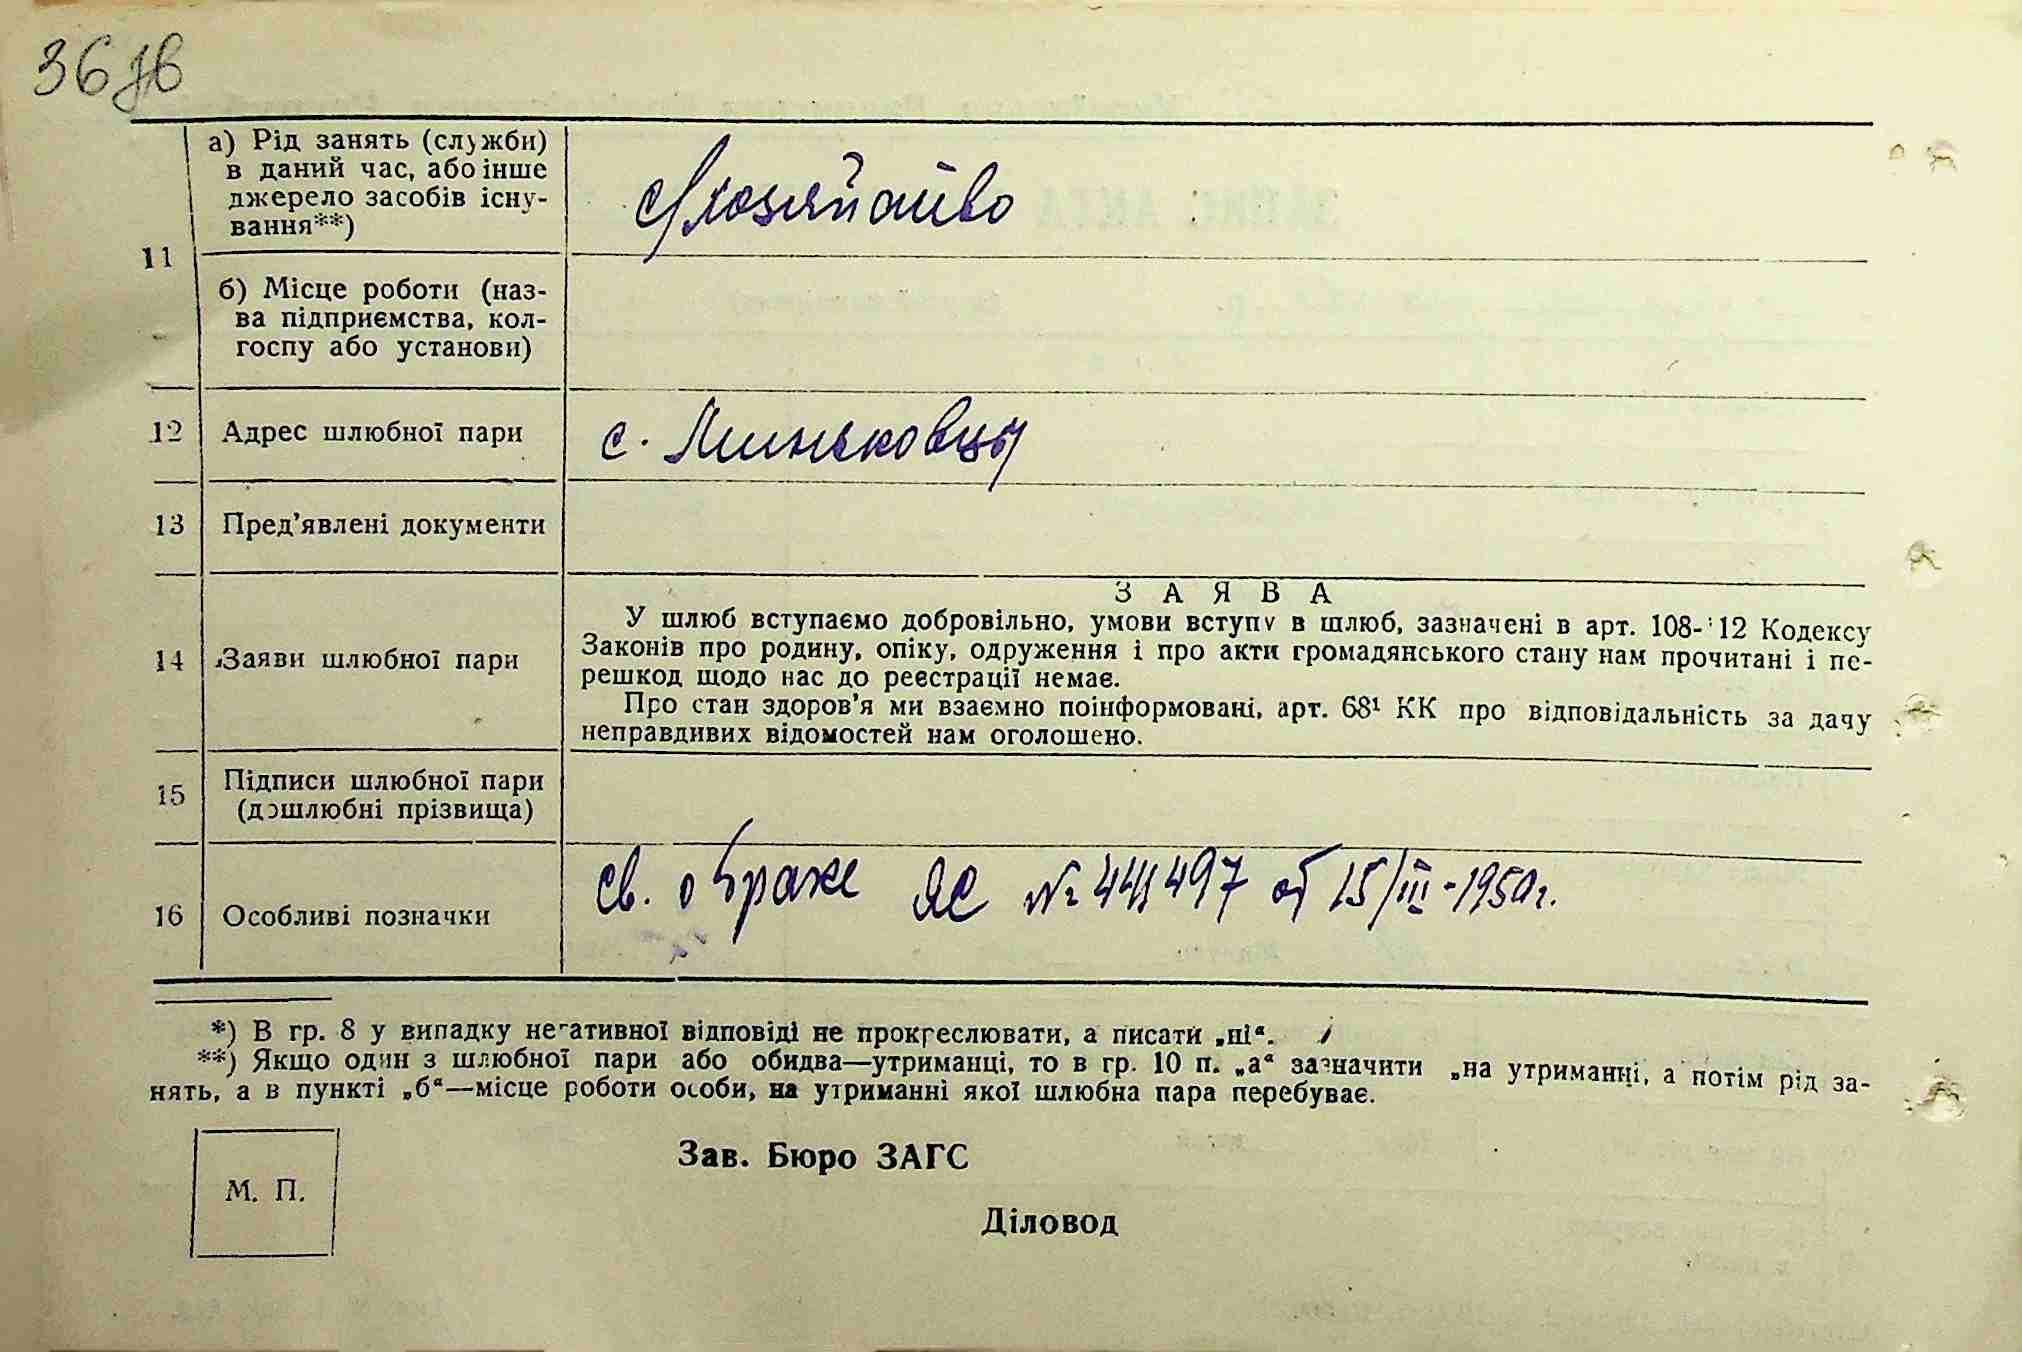 36зв
а) Рід занять (служби)
в даний час, або інше
джерело засобів існу-
вання**)
с/хозяйство
11
б) Місце роботи (наз-
ва підприємства, кол-
госпу або установи)
12 Адрес шлюбної пари с. Миньковцы
13 Пред'явлені документи
ЗАЯВА
У шлюб вступаємо добровільно, умови вступу в шлюб, зазначені в арт. 108-112 Кодексу
Законів про родину, опіку, одруження і про акти громадянського стану нам прочитані і пе-
14 Заяви шлюбної пари
решкод щодо нас до реєстрації немає.
Про стан здоров'я ми взаємно поінформовані, арт. 68¹ КК про відповідальність за дачу
неправдивих відомостей нам оголошено.
15 Підписи шлюбної пари
(дошлюбні прізвища)
16 Особливі позначки св. о браке ЯС № 441497 от 15/III-1950г.
*) В гр. 8 у випадку негативної відповіді не прокреслювати, а писати „ні“.
**) Якщо один з шлюбної пари або обидва—утриманці, то в гр. 10 п. „а“ зазначити „на утриманні, а потім рід за-
нять, а в пункті „б“—місце роботи особи, на утриманні якої шлюбна пара перебуває.
Зав. Бюро ЗАГС
М. П.
Діловод